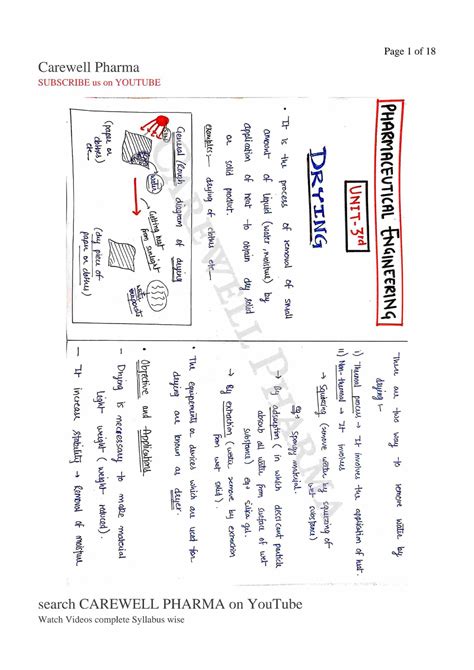 Page 1 of 18
Carewell Pharma
SUBSCRIBE us on YOUTUBE
PHARMACEUTICAL ENGINEERING
UNIT-3rd
DRYING
• It is the process of removal of small
amount of liquid (water moisture) by
application of heat to obtain dry solid
or solid product.
examples:- drying of clothes etc—
General/Rough diagram of drying
Sun
water
(paper or
clothes)
etc—
Getting heat
from sunlight
water
evaporate
(dry piece of
paper or clothes)
There are two way to remove water by
drying :-
i) Thermal process → It involves the application of heat.
ii) Non-thermal → It involves
→ Squeezing (remove water by squeezing of
wet substance)
eg: spongy material.
→ By adsorption (in which desiccant particle
absorb all water from surface of wet
substance) eg: silica gel.
→ By extraction (water remove by extraction
from wet solid).
• The equipements or devices which are used for
drying are known as dryer.
• Objective and Applications
– Drying is neccessary to make material
light weight (reduced weight)
– It increase stability → Removal of moisture
CAREWELL PHARMA
search CAREWELL PHARMA on YouTube
Watch Videos complete Syllabus wise